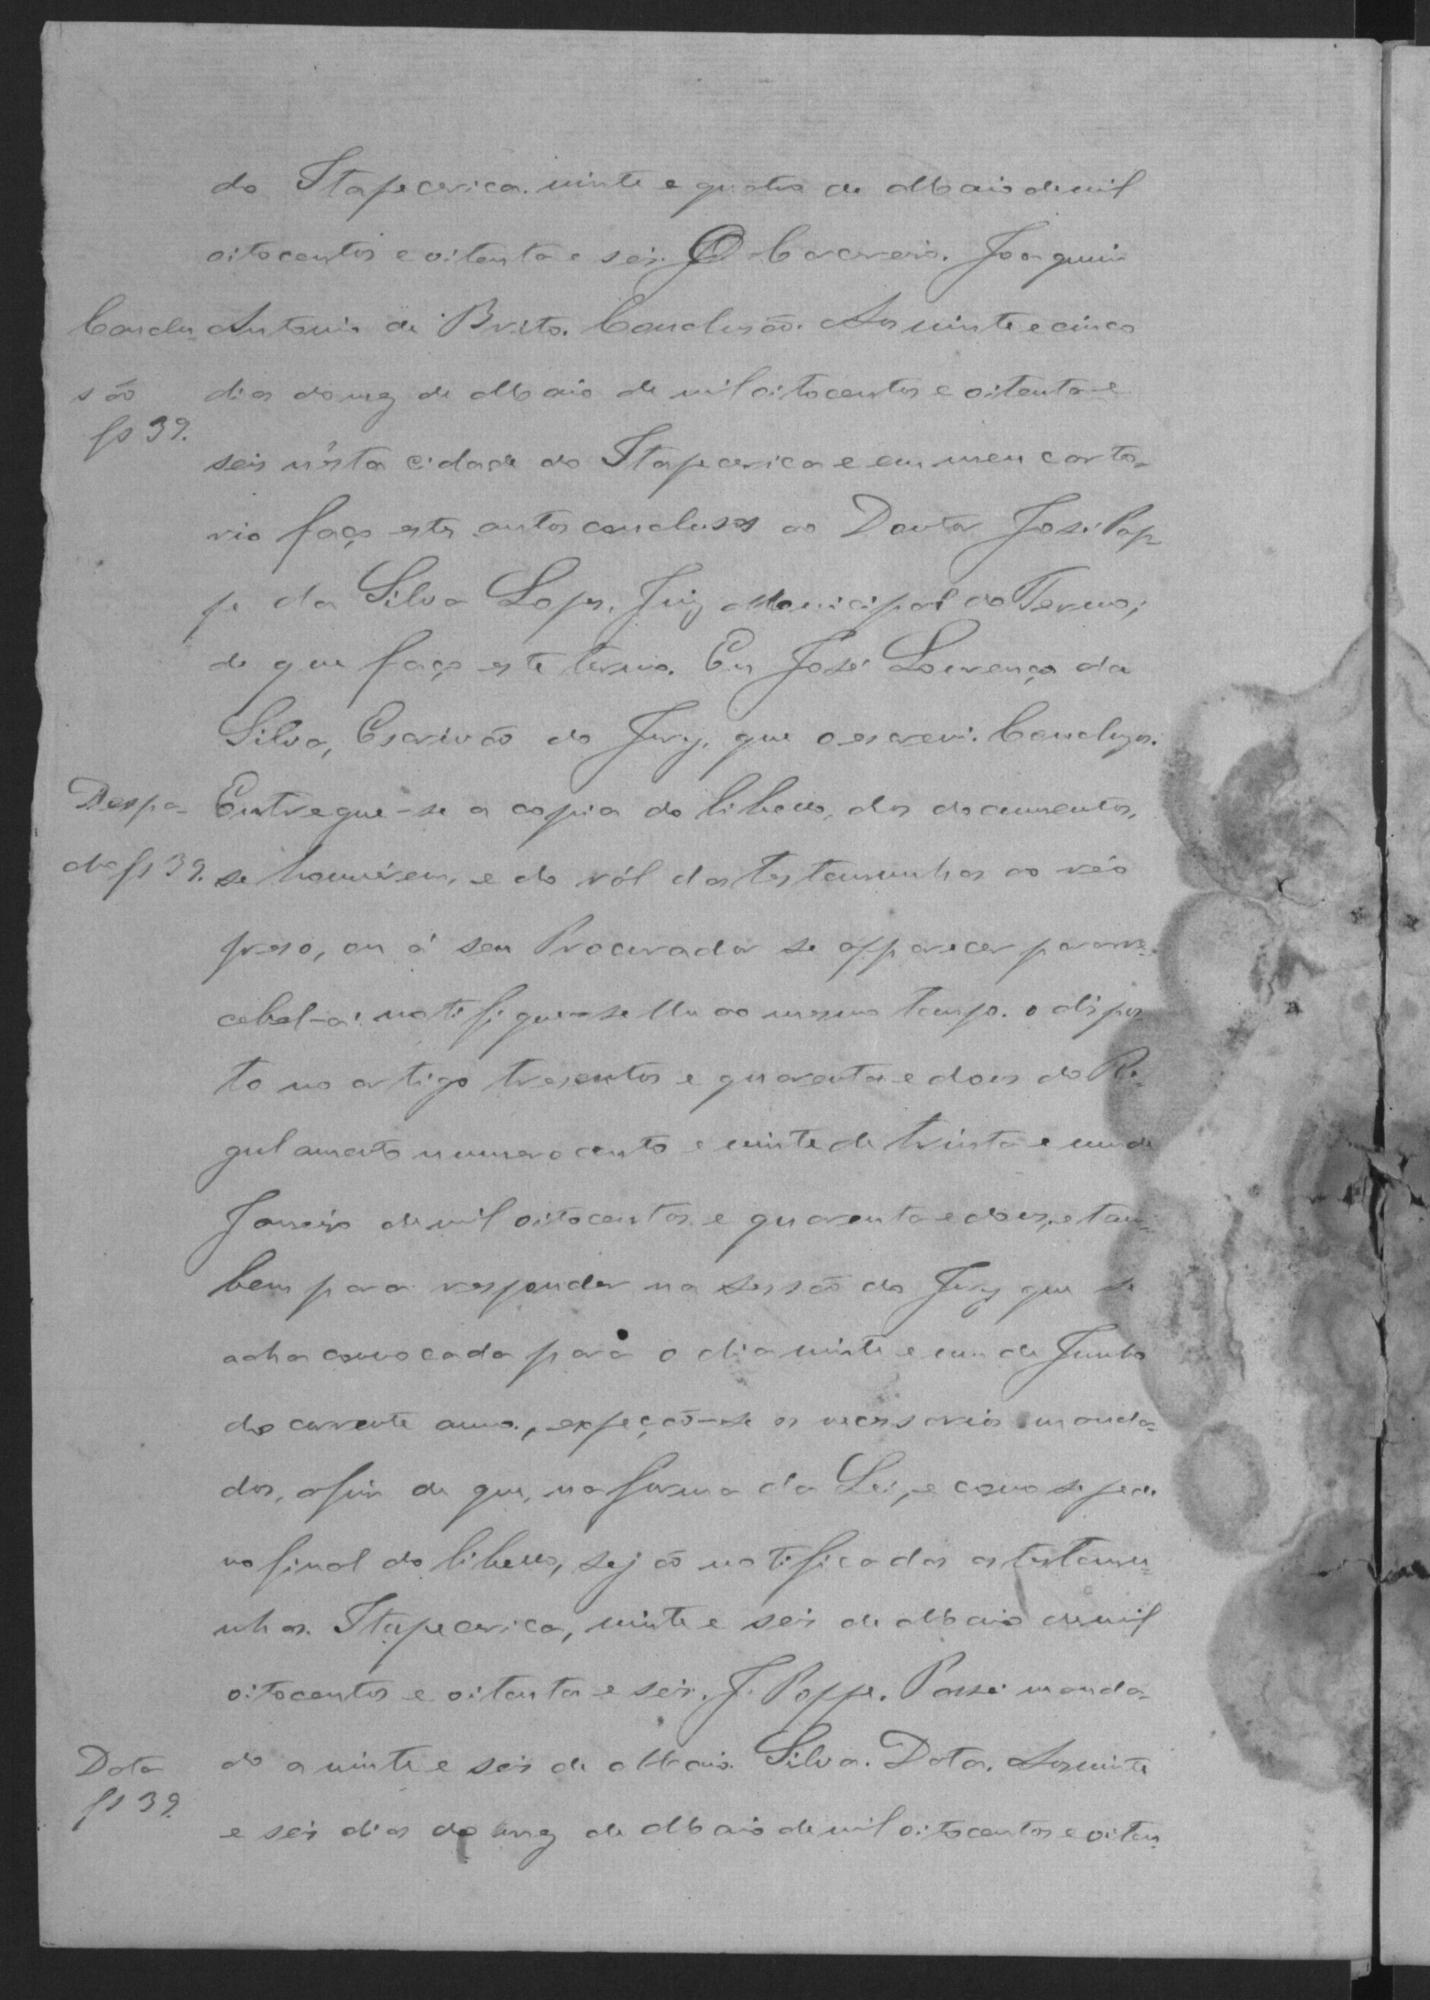 do Itapecerica. vinte e quatro de Maio de mil
oitocentos e oitenta e seis. O Carcereiro. Joaquim
Conclu- Antonio de Brito. Conclusão. Aos vinte e cinco
são dias do mez de Maio de mil oitocentos e oitenta e
fs 39.
seis n'esta cidade do Itapecerica e em meu carto-
rio faço estes autos conclusos ao Doutor José Pop-
pe da Silva Lopes, Juiz Municipal do Termo;
de que faço este termo. Eu José Lourenço da
Silva, Escrivão do Jury, que o escrevi. Conclusos.
Despa- Entregue-se a copia do libello, dos documentos,
cho fs 39. se houvérem, e do ról das testemunhas ao réo
preso, ou á seu Procurador se apparecer para re-
cebel-a: notifique-se lhe ao mesmo tempo. o dispos
to no artigo tresentos e quarenta e dois do Re-
gulamento numero cento e vinte de trinta e um de
Janeiro de mil oitocentos e quarenta e dois, e tam-
bem para responder na sessão do Jury que se
acha convocada para o dia vinte e um de Junho
do corrente anno, expeção-se os necessarios manda-
dos, afim de que, na forma da Lei, e como se pede
no final do libello, sejão notificadas as testemu-
nhas. Itapecerica, vinte e seis de Maio de mil
oitocentos e oitenta e seis. J. Poppe. Passei manda-
Data do a vinte e seis de Maio. Silva. Data. Aos vinte
fs 39.
e seis dias do mez de Maio de mil oitocentos e oiten